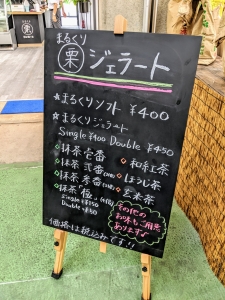 まるくり
栗 ジェラート
☆まるくりソフト ¥400
☆まるくりジェラート
Single ¥400 Double ¥450
抹茶壱番
抹茶弐番
抹茶参番
抹茶「極」
Single ¥550
Double
和紅茶
ほうじ茶
玄米茶
その他の
お味もご用意
あります♪
価格は税込みです!!